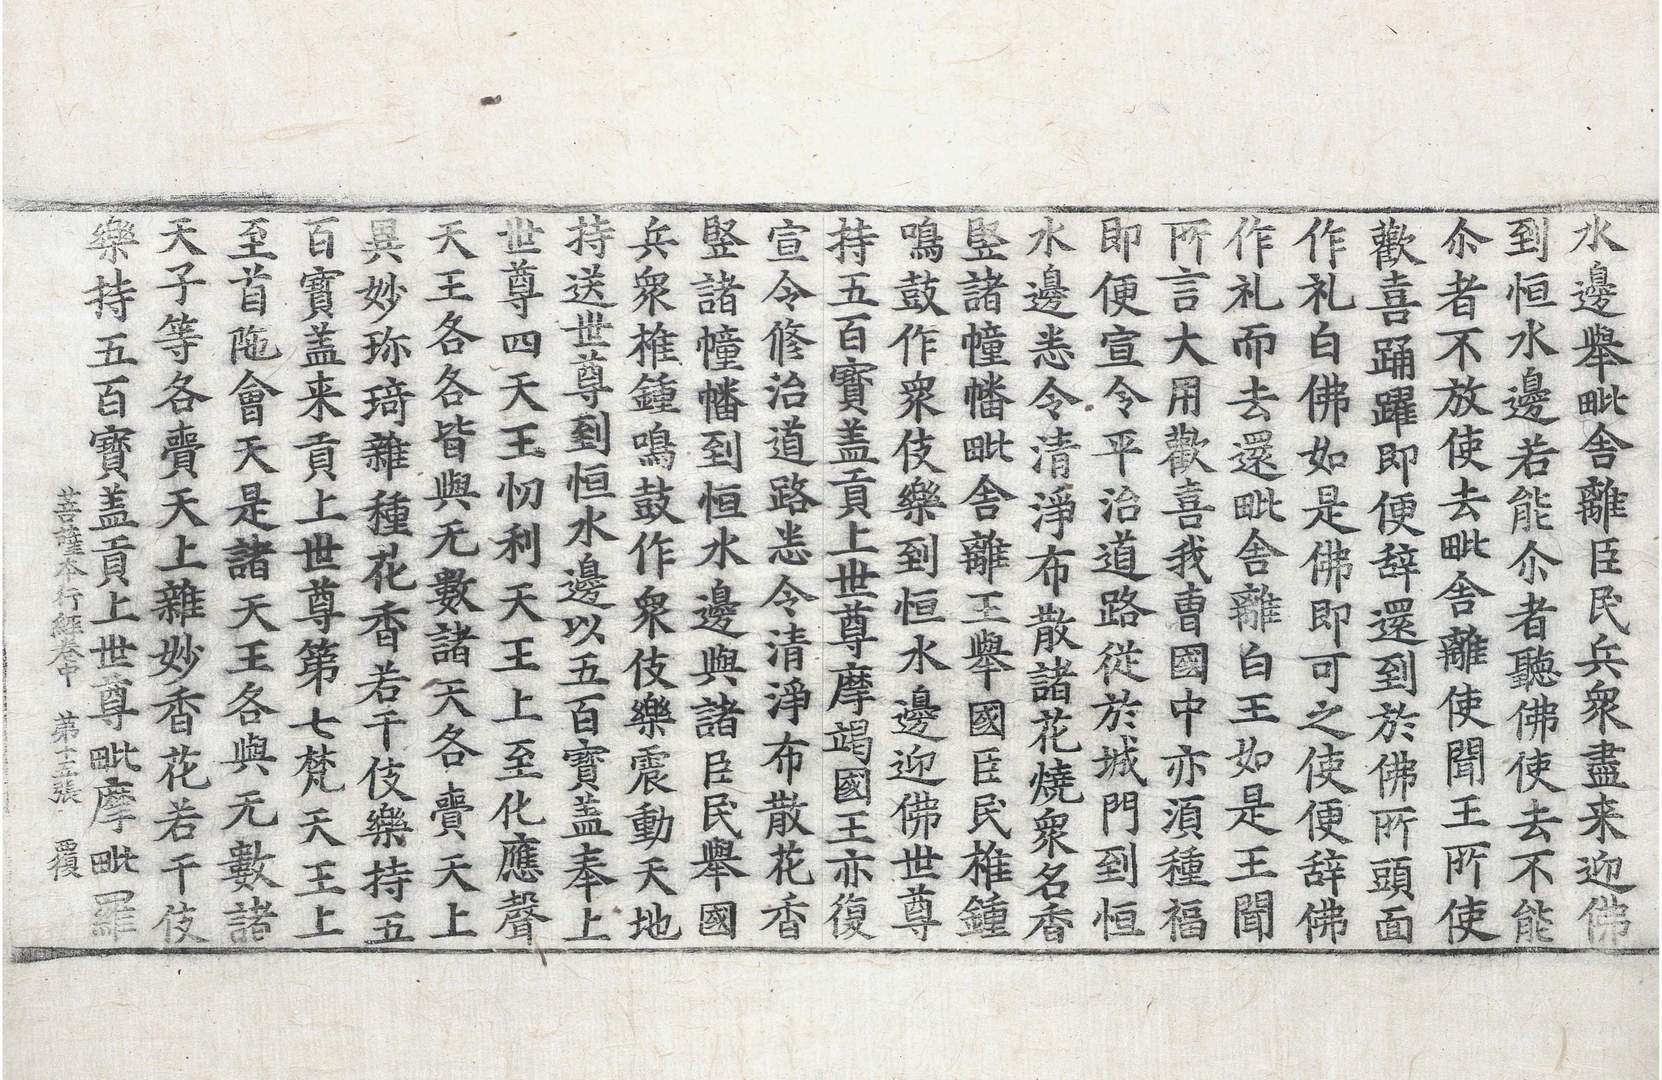 水邊舉毗舍離臣民兵衆盡来迎佛
到恒水邊若能尒者聽佛使去不能
尒者不放使去毗舍離使聞王所使
歡喜踊躍即便辞還到於佛所頭面
作礼白佛如是佛即可之使便辞佛
作礼而去還毗舍離白王如是王聞
所言大用歡喜我曺國中亦湏種福
即便宣令平治道路從於城門到恒
水邊悉令清淨布散諸花燒衆名香
竪諸幢幡毗舍離王舉國臣民椎鍾
鳴鼓作衆伎樂到恒水邊迎佛世尊
持五百寶盖貢上世尊摩竭國王亦復
宣令修治道路悉令清淨布散花香
竪諸幢幡到恒水邊與諸臣民舉國
兵衆椎鍾鳴鼓作衆伎樂震動天地
持送世尊到恒水邊以五百寶盖奉上
世尊四天王忉利天王上至化應聲
天王各各皆與无數諸天各賷天上
異妙珎琦雜種花香若干伎樂持五
百寶盖来貢上世尊第七梵天王上
至首陁會天是諸天王各與无數諸
天子等各賷天上雜妙香花若干伎
樂持五百寶盖貢上世尊毗摩毗羅
菩薩本行經卷中 第十五張 覆